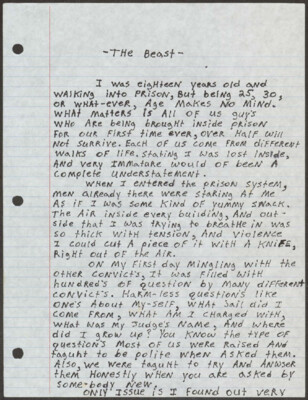 -The Beast-
I was eighteen years old and
walking into prison, But being 25, 30,
or what-ever, Age makes no mind.
What matters is all of us guys
who are being brought inside prison
for our first time ever, over half will
not survive. Each of us come from different
walks of life, stating I was lost inside,
and very immature would of been a
complete understatement.
When I entered the prison system,
men already there were staring at me
as if I was some kind of yummy snack.
The air inside every building, and out-
side that I was trying to breathe in was
so thick with tension, and violence
I could cut a piece of it with a knife,
right out of the air.
On my first day mingling with the
other convict's, it was filled with
hundred's of question by many different
convict's. Harm-less question's like
one's about my-self, what jail did I
come from, what am I charged with,
what was my judge's name, and where
did I grow up? You know the type of
question's most of us were raised and
taguht to be polite when asked them.
Also, we were taguht to try and answer
them honestly when you are asked by
some-body new.
Only issue is I found out very